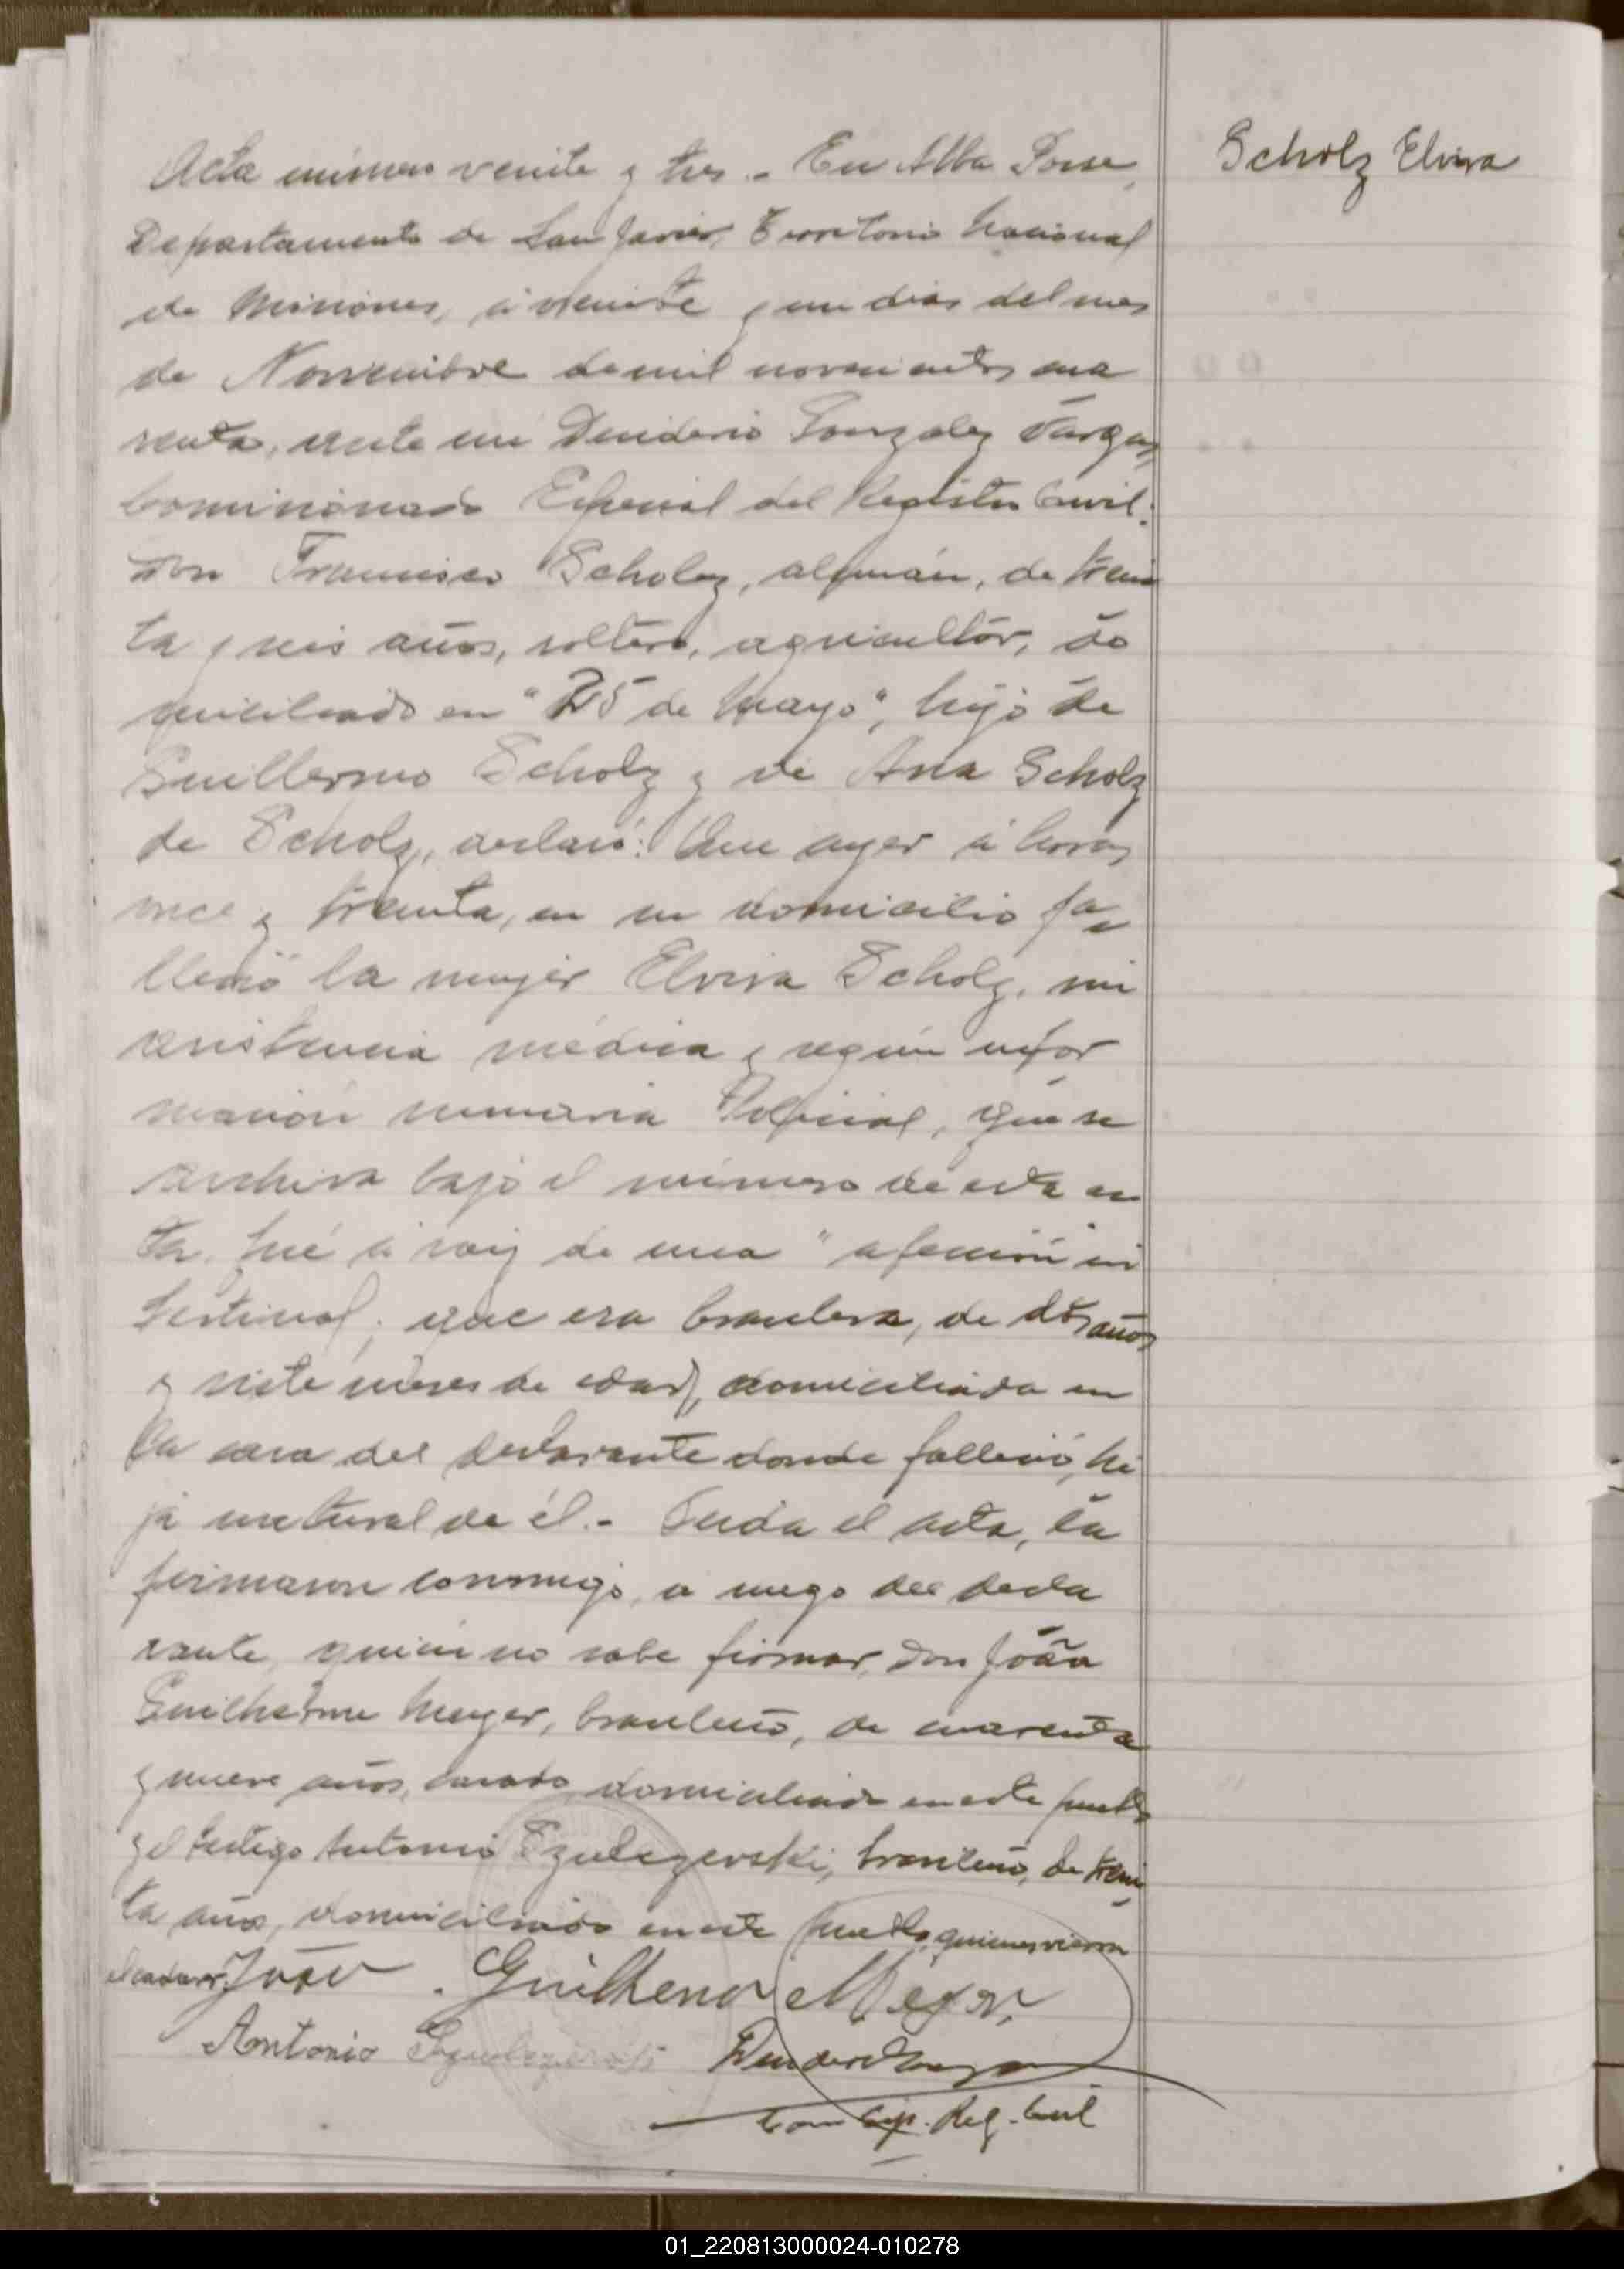 Scholz Elvira
Acta número veinte y tres.- En Alba Posse,
Departamento de San Javier, Territorio Nacional
de Misiones, á veinte y un dias del mes
de Noviembre de mil novecientos cua
renta, ante mi Desiderio Gonzalez Vargas,
Comisionado Especial del Registro Civil:
don Francisco Scholz, alemán, de trein
ta y seis años, soltero, agricultor, do
miciliado en "25 de Mayo", hijo de
Guillermo Scholz y de Ana Scholz
de Scholz, declaró: Que ayer á horas
once y treinta, en su domicilio fa
lleció la mujer Elvira Scholz, sin
asistencia médica y según infor
mación sumaria Policial, que se
archiva bajo el número de esta ac
ta, fué á raiz de una "afección in
testinal; que era brasilera, de dos años
y siete meses de edad, domiciliada en
la casa del declarante donde falleció, hi
ja natural de él.- Leida el acta, la
firmaron conmigo, a ruego del decla
rante, quien no sabe firmar, don João
Guilherme Meyer, brasileño, de cuarenta
y nueve años, casado, domiciliado en este pueblo
y el testigo Antonio Szulczewski, brasileño, de trein
ta años, domiciliado en este pueblo, quienes vieron
el cadaver. João Guilherme Meyer
Antonio
Com Esp. Reg. Civil
01_220813000024-010278